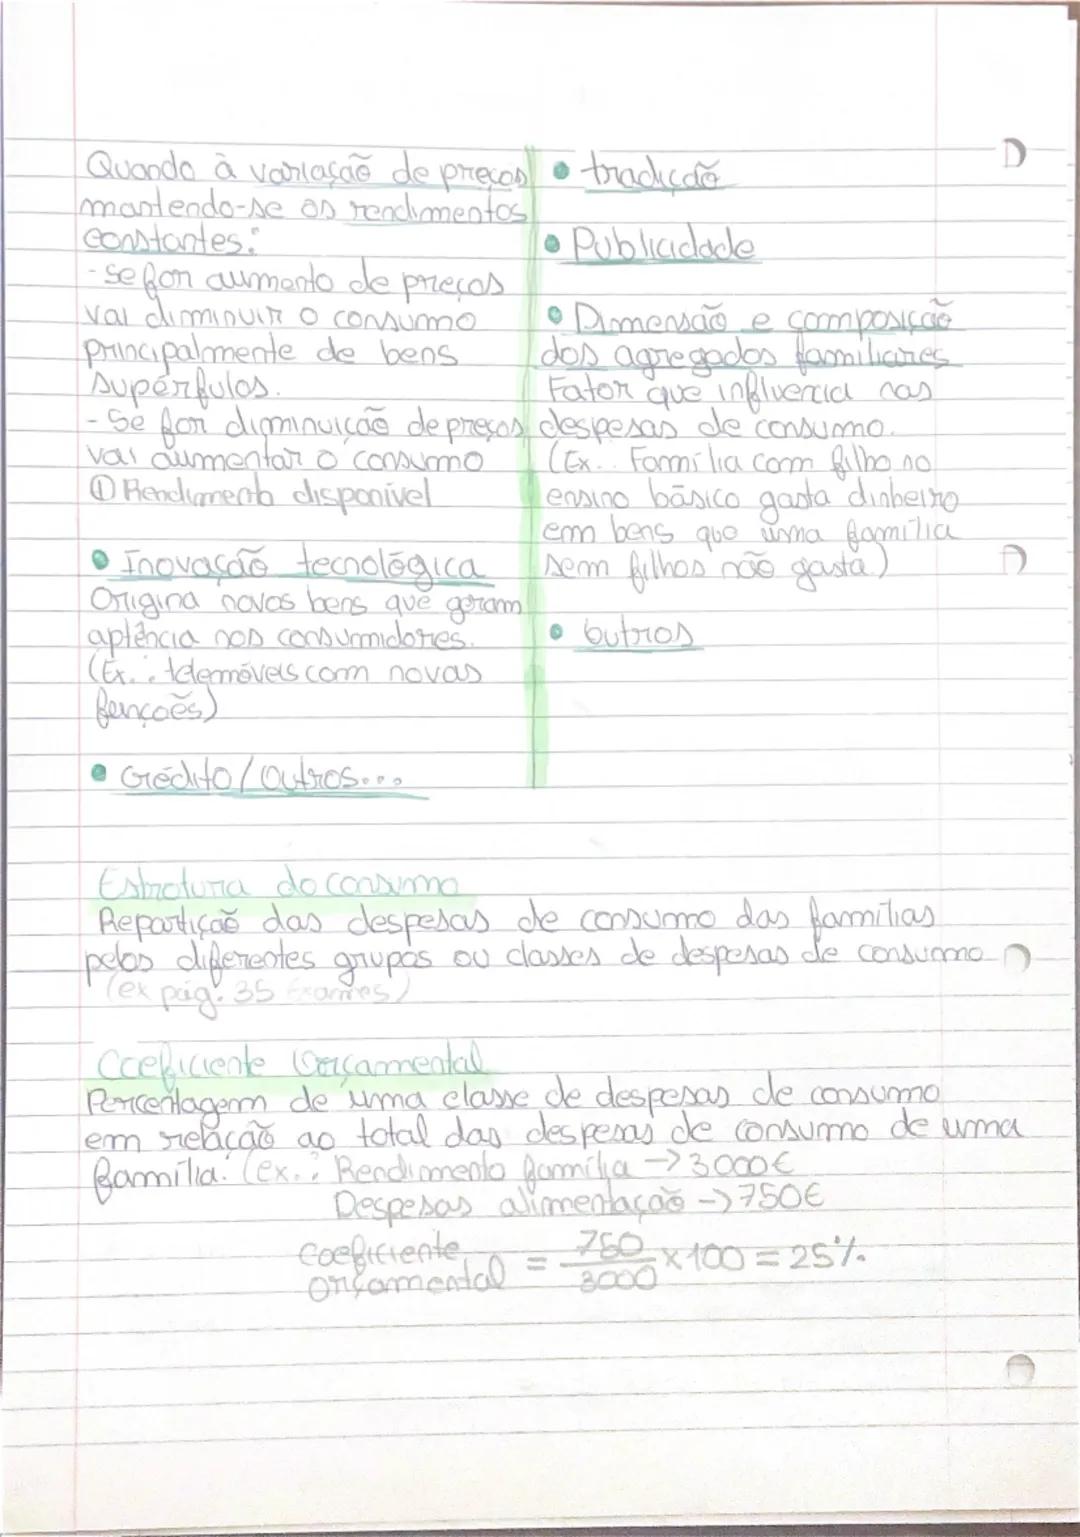 Quando à variação de preços
mantendo-se os rendimentos
constantes:
- se for aumento de preços
vai diminuir o consumo
principalmente de bens
supérfulos.
- Se for diminuição de preços
vai aumentar o consumo
① Rendimento disponível
• Inovação tecnológica
Origina novos bens que geram
aptência nos consumidores.
(Ex.: telemóveis com novas
funções)
• Crédito / Outros...
• tradição
• Publicidade
• Dimensão e composição
dos agregados familiares
Fator que influencia nas
despesas de consumo.
(Ex.. Família com filho no
ensino básico gasta dinheiro
em bens que uma família
sem filhos não gasta.)
• outros
Estrotura do consumo
Repartição das despesas de consumo das famílias
pelos diferentes grupos ou classes de despesas de consumo
(ex pág. 35 Exames)
Coeficiente Orçamental
Percentagem de uma classe de despesas de consumo
em relação ao total das despesas de consumo de uma
família. (ex.: Rendimento família -> 3000€
Despesas alimentação -> 750€
Coeficiente orçamental = 750/3000 x 100 = 25%